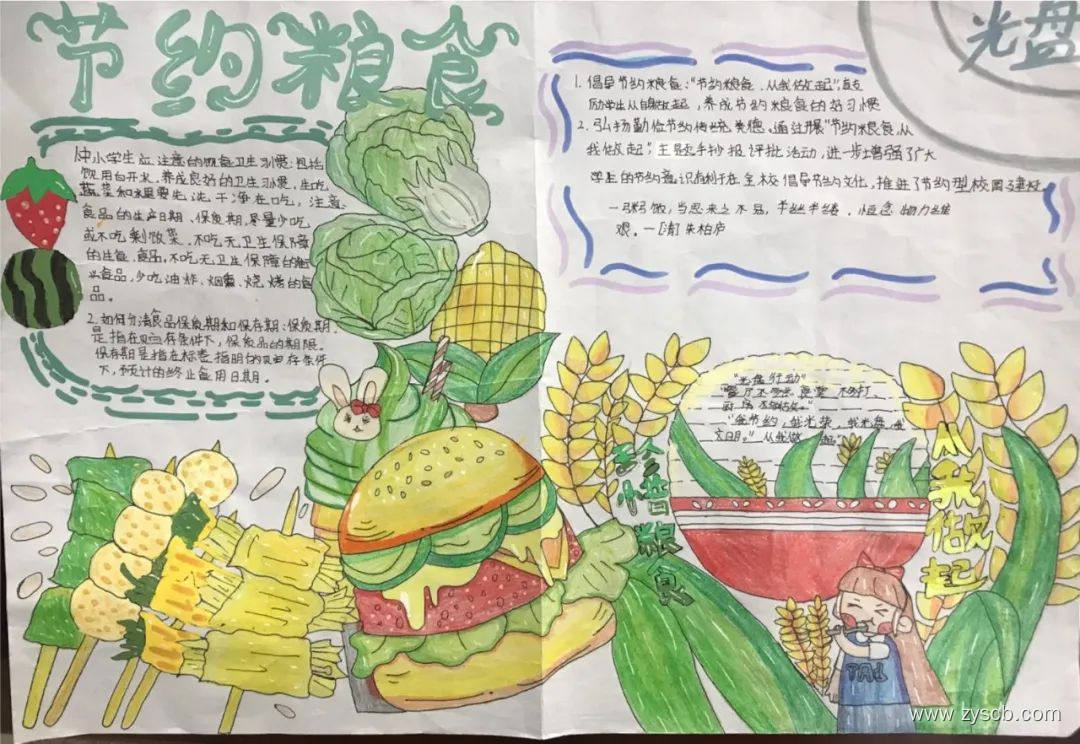 节约粮食
中小学生应注意的饮食卫生习惯:包括
饮用白开水,养成良好的卫生习惯,生吃
蔬菜和水果要生洗干净在吃,注意
食品的生产日期、保质期,尽量少吃
或不吃剩饭菜,不吃无卫生保障
的生食食品,不吃无卫生保障的
食品,少吃油炸、烟熏、烧烤的食
品。
2.如何分清食品保质期和保存期:保质期,
是指在贮存条件下,保质品的期限。
保存期是指在标签指明的贮存条件
下,预计的终止食用日期。
光盘
1.倡导节约粮食:“节约粮食,从我做起”,鼓
励学生从自身做起,养成节约粮食的好习惯
2.弘扬勤俭节约传统美德。通过开展“节约粮食,从
我做起”主题手抄报评批活动,进一步增强了广大
学生的节约意识有利于在全校倡导节约文化,推进了节约型校园建设。
一粥一饭,当思来之不易,半丝半缕,恒念物力维
艰。一[清]朱柏庐
“光盘行动”
“餐厅不多点 食堂不多打
厨房不多做。”
“我节约,我光荣,我光盘,我
文明。”从我做起
珍惜粮食
从我做起
www.zyscb.com